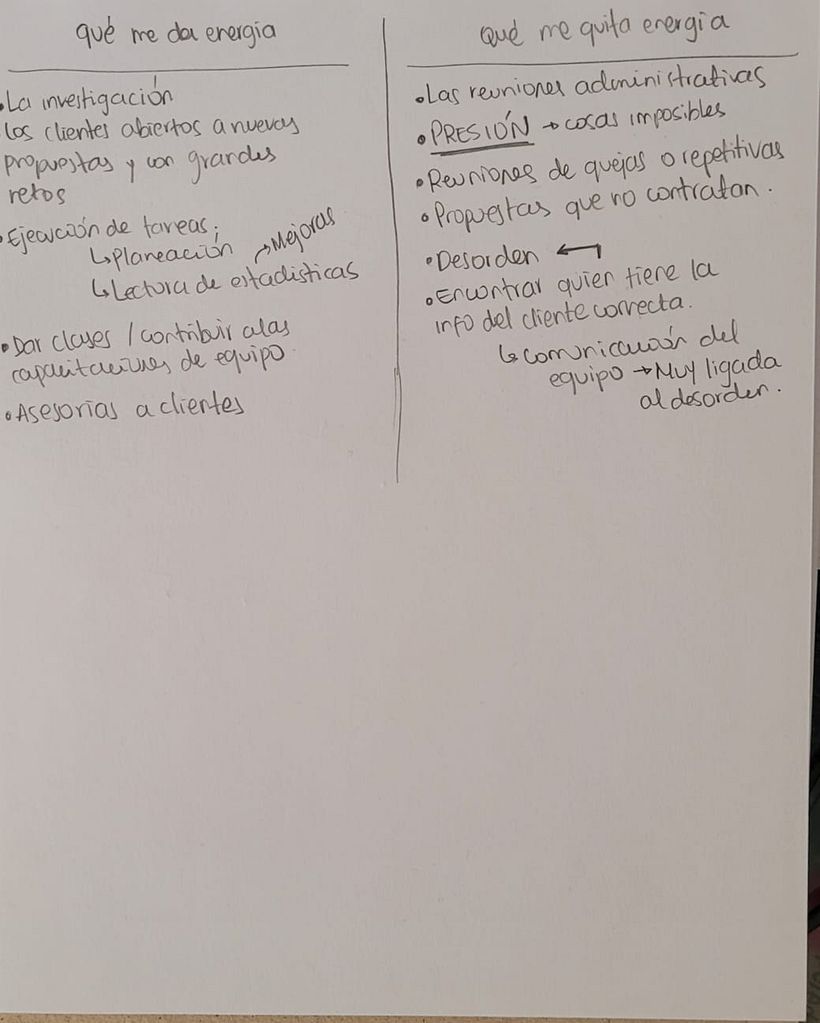 qué me da energía
• La investigación
los clientes abiertos a nuevas
propuestas y con grandes
retos
• Ejecución de tareas;
↳ Planeación → Mejoras
↳ Lectura de estadísticas
• Dar clases / contribuir a las
capacitaciones de equipo.
• Asesorías a clientes
Qué me quita energía
• Las reuniones administrativas
• PRESIÓN → cosas imposibles
• Reuniones de quejas o repetitivas
• Propuestas que no contratan.
• Desorden ←
• Encontrar quien tiene la
info del cliente correcta.
↳ Comunicación del
equipo → Muy ligada
al desorden.